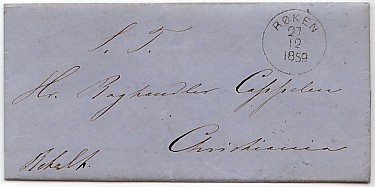 RØKEN
27
12
1859
S. T.
Hr. Boghandler Cappelen
Christiania
Betalt.